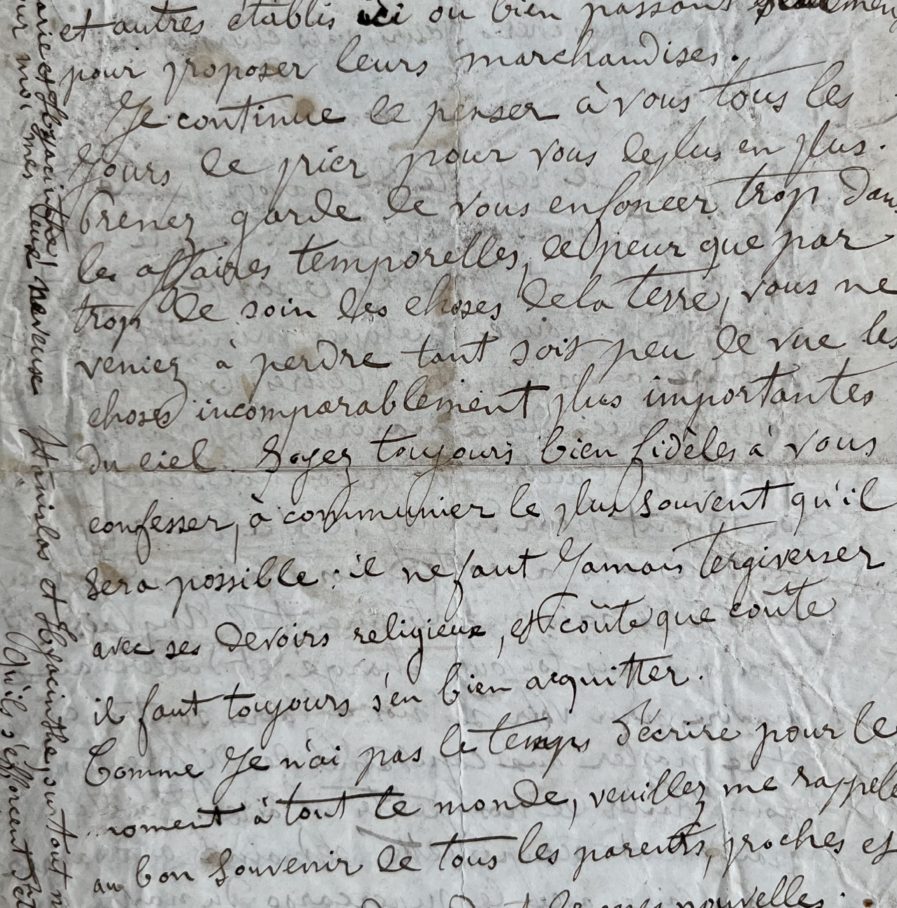 et autres établis ici ou bien passant
pour proposer leurs marchandises.
Je continue de penser à vous tous les
Jours de prier pour vous de plus en plus.
Prenez garde de vous enfoncer trop dans
les affaires temporelles, de peur que par
trop de soin des choses de la terre, vous ne
veniez à perdre tant soit peu de vue les
choses incomparablement plus importantes
du ciel. Soyez toujours bien fidèles à vous
confesser, à communier le plus souvent qu'il
sera possible : il ne faut Jamais tergiverser
avec ses devoirs religieux, et coûte que coûte
il faut toujours s'en bien acquitter.
Comme Je n'ai pas le temps d'écrire pour le
moment à tout le monde, veuillez me rappele
au bon souvenir de tous les parents, proches et
mes nouvelles.
et Hyacinthe! neveux Stanislas et Hyacinthe, surtout
moi mes
Qu'ils s'efforcent d'êt